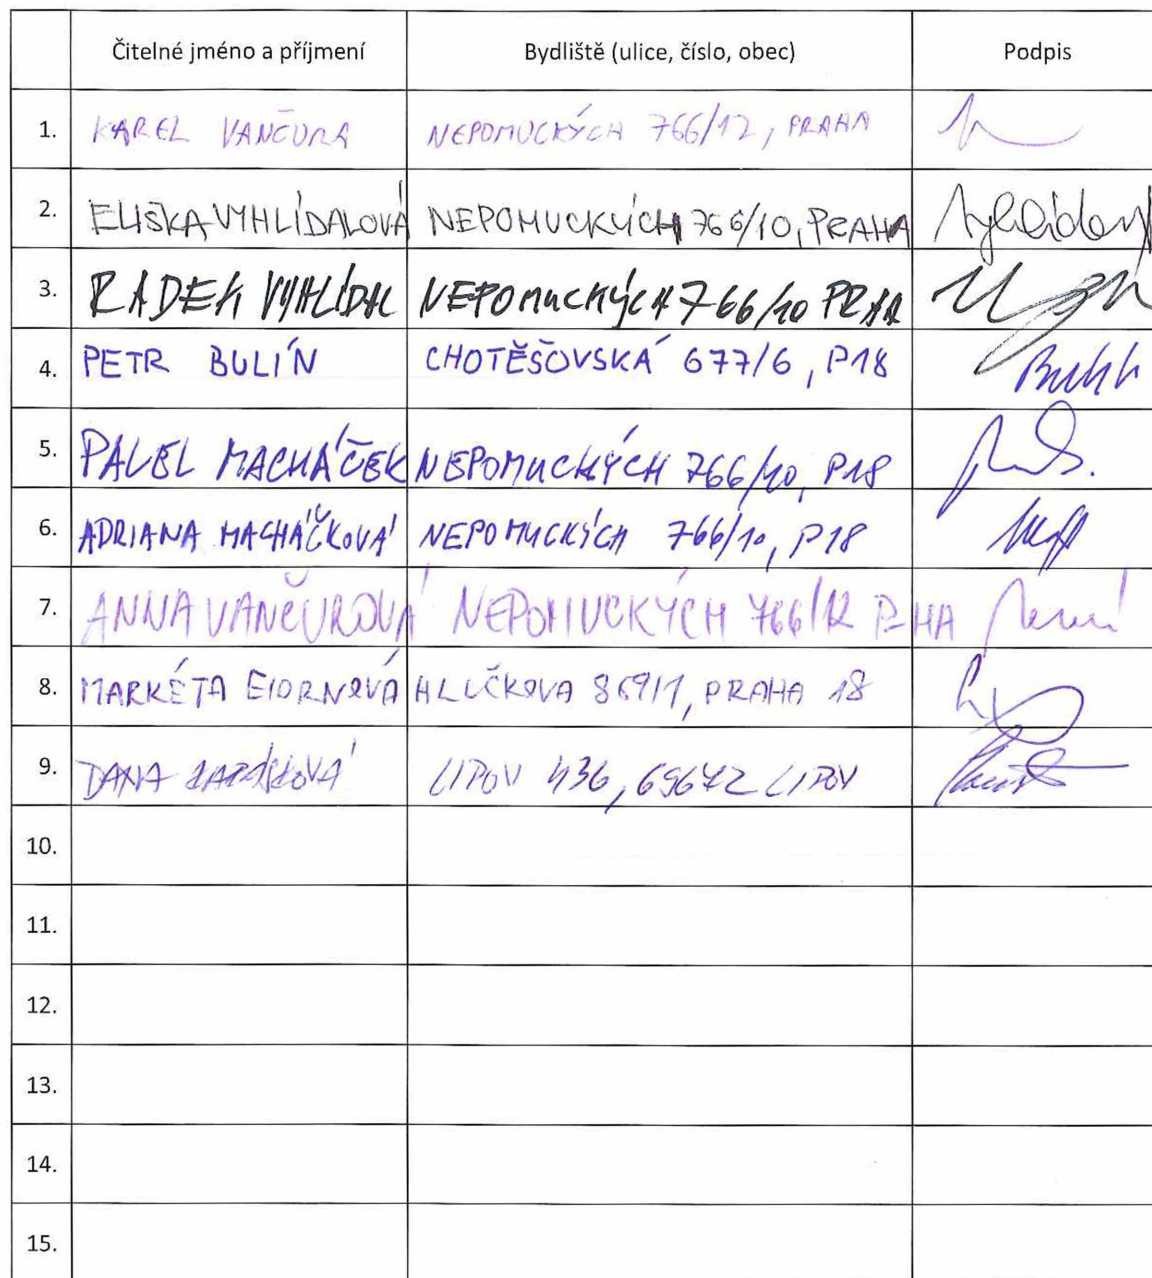 Čitelné jméno a příjmení Bydliště (ulice, číslo, obec) Podpis
1. KAREL VANČURA NEPOMUCKÝCH 766/12, PRAHA
2. ELIŠKA VYHLÍDALOVÁ NEPOMUCKÝCH 766/10, PRAHA
3. RADEK VYHLÍDAL NEPOMUCKÝCH 766/10 PRAHA
4. PETR BULÍN CHOTĚŠOVSKÁ 677/6, P18
5. PAVEL MACHÁČEK NEPOMUCKÝCH 766/10, P18
6. ADRIANA MACHÁČKOVÁ NEPOMUCKÝCH 766/10, P18
7. ANNA VANČUROVÁ NEPOMUCKÝCH 766/12 P-HA
8. MARKÉTA HLUČKOVA 869/1, PRAHA 18
9. DANA LIPOV 436, 69672 LIPOV
10.
11.
12.
13.
14.
15.